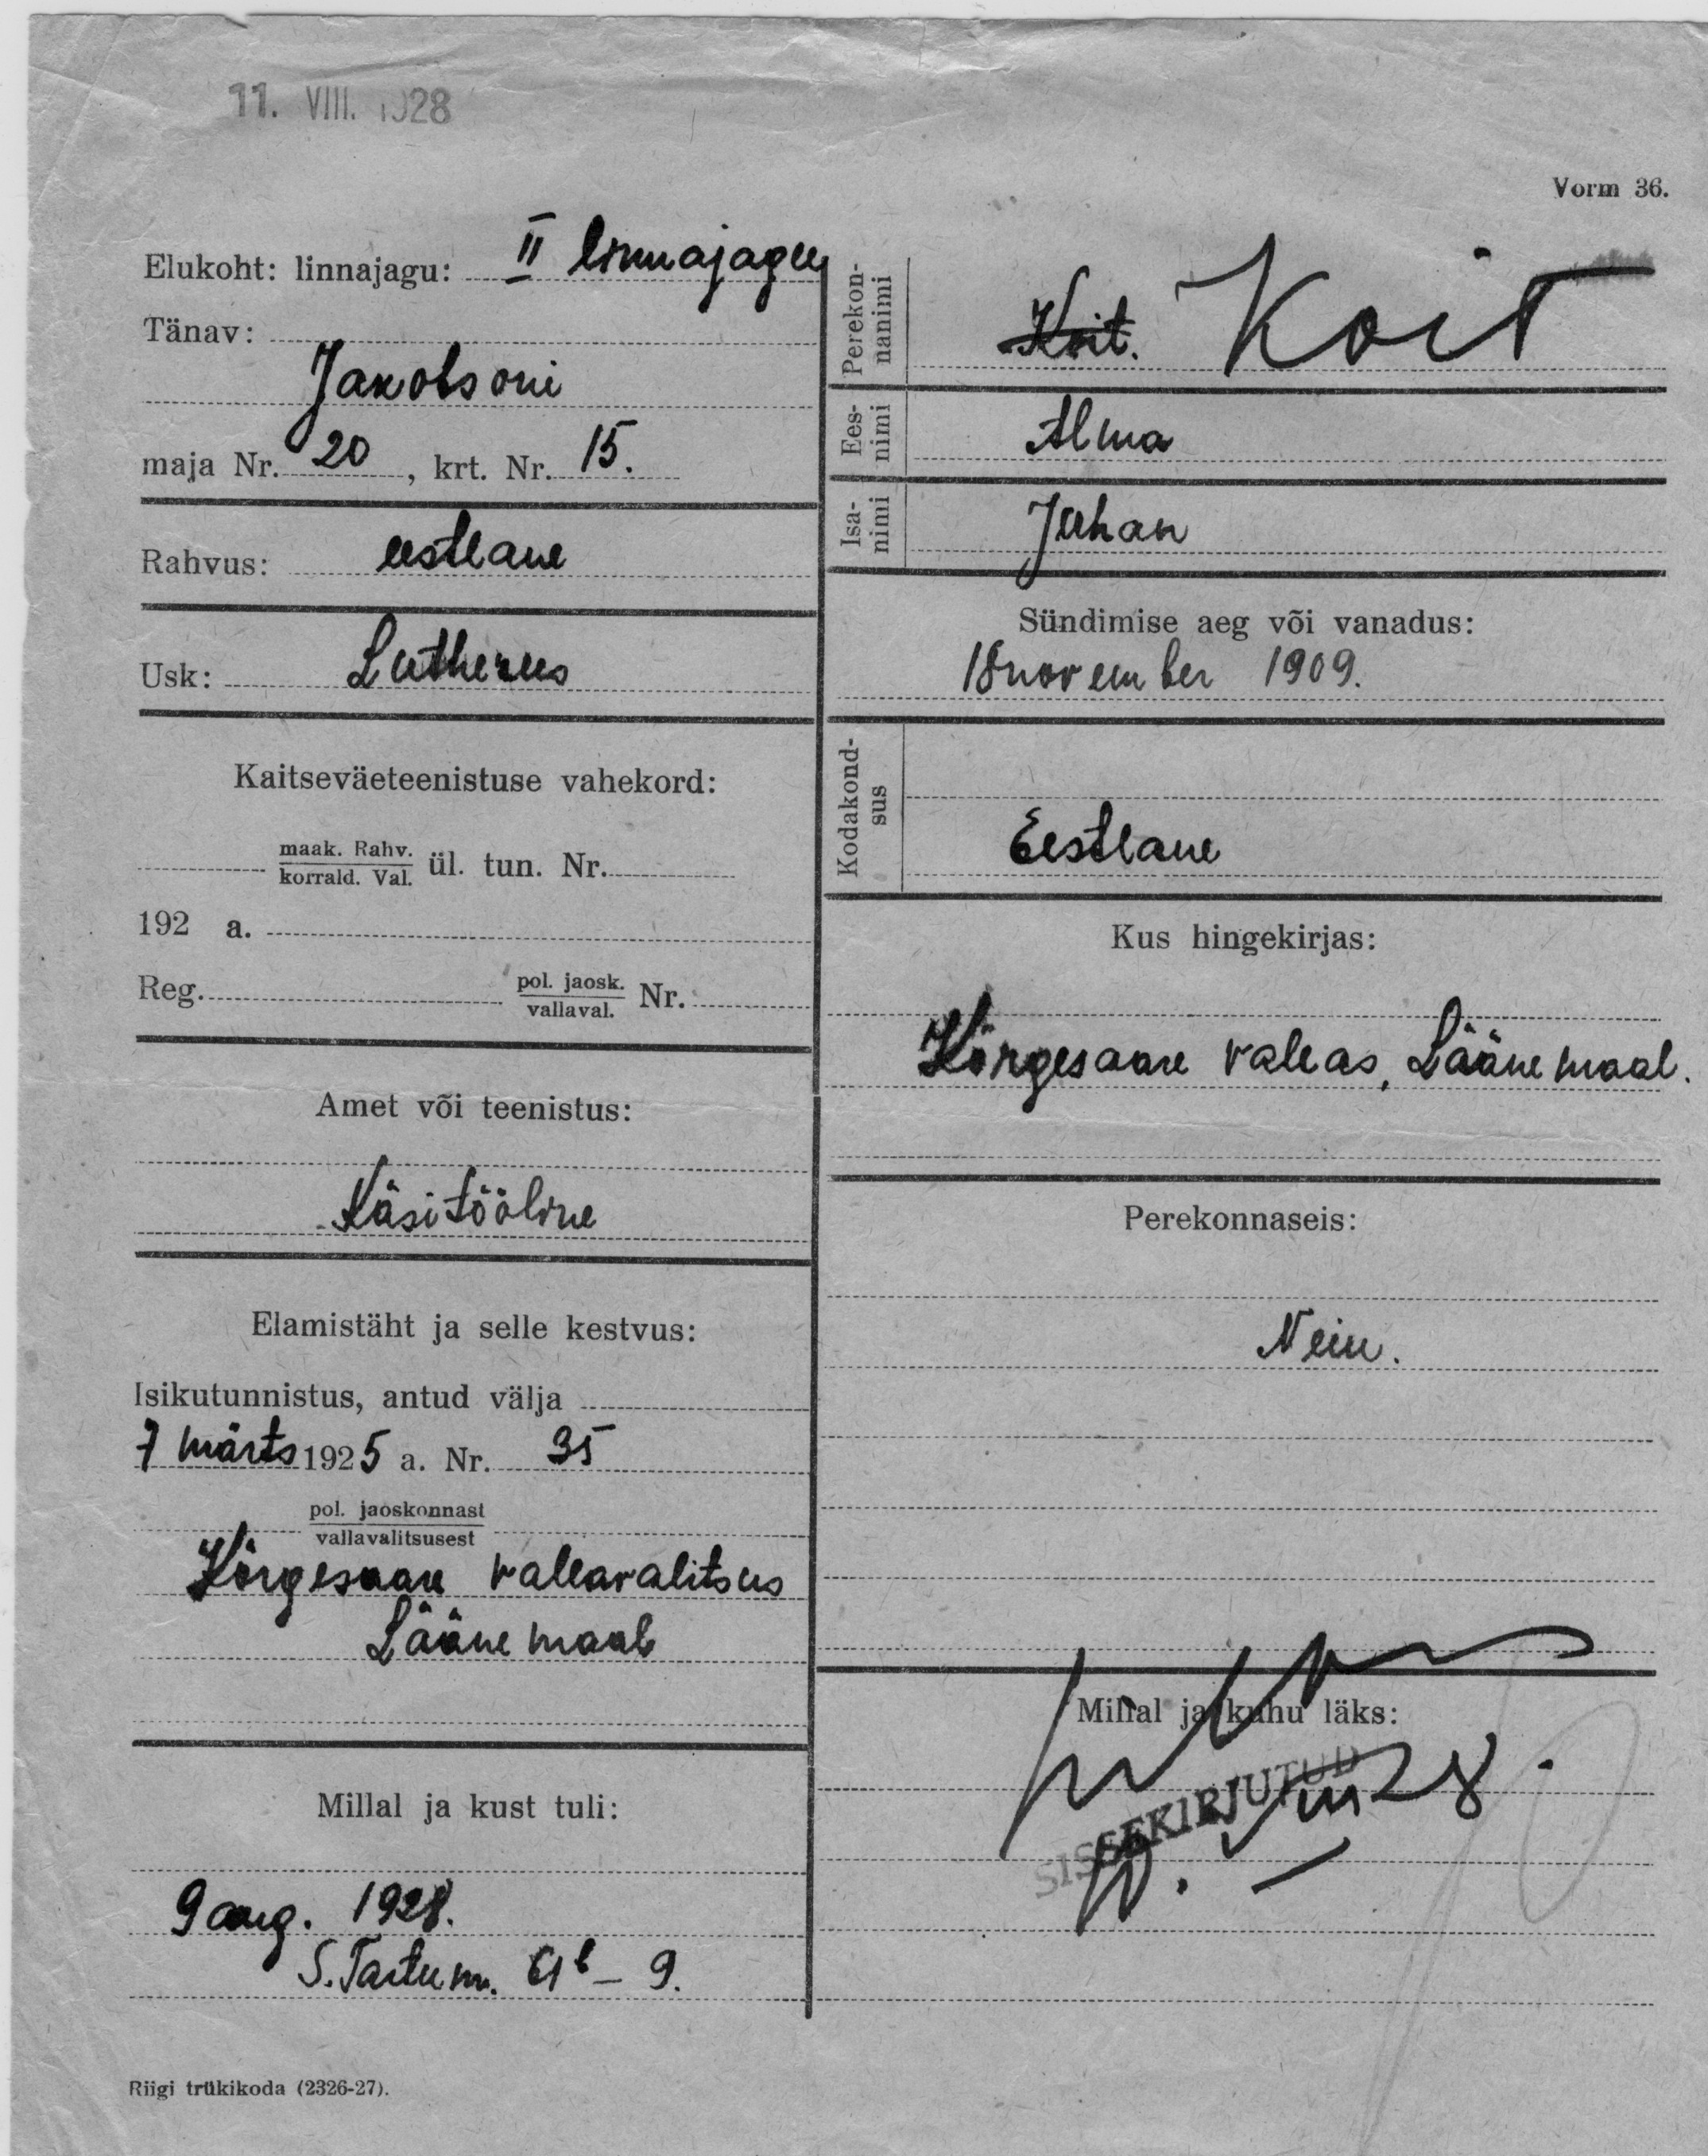 11. VIII. 1928
Vorm 36.
Elukoht: linnajagu: II linnajagu
Tänav:
Jakobsoni
maja Nr. 20, krt. Nr. 15.
Rahvus: eestlane
Usk: Lutherus
Kaitseväeteenistuse vahekord:
maak. Rahv.
korrald. Val. ül. tun. Nr.
192 a.
Reg. pol. jaosk.
vallaval. Nr.
Amet või teenistus:
Käsitööline
Elamistäht ja selle kestvus:
Isikutunnistus, antud välja
7 märts 1925 a. Nr. 35
pol. jaoskonnast
vallavalitsusest
Kõrgesaare vallavalitsus
Läänemaal
Millal ja kust tuli:
9 aug. 1928.
S. Tartu m. 61b - 9.
Riigi trükikoda (2326-27).
Perekonnanimi
Koit. Koit
Eesnimi
Alma
Isanimi
Juhan
Sündimise aeg või vanadus:
18 november 1909.
Kodakondsus
Eestlane
Kus hingekirjas:
Kõrgesaare vallas, Läänemaal.
Perekonnaseis:
Neiu.
Millal ja kuhu läks:
SISSEKIRJUTUD